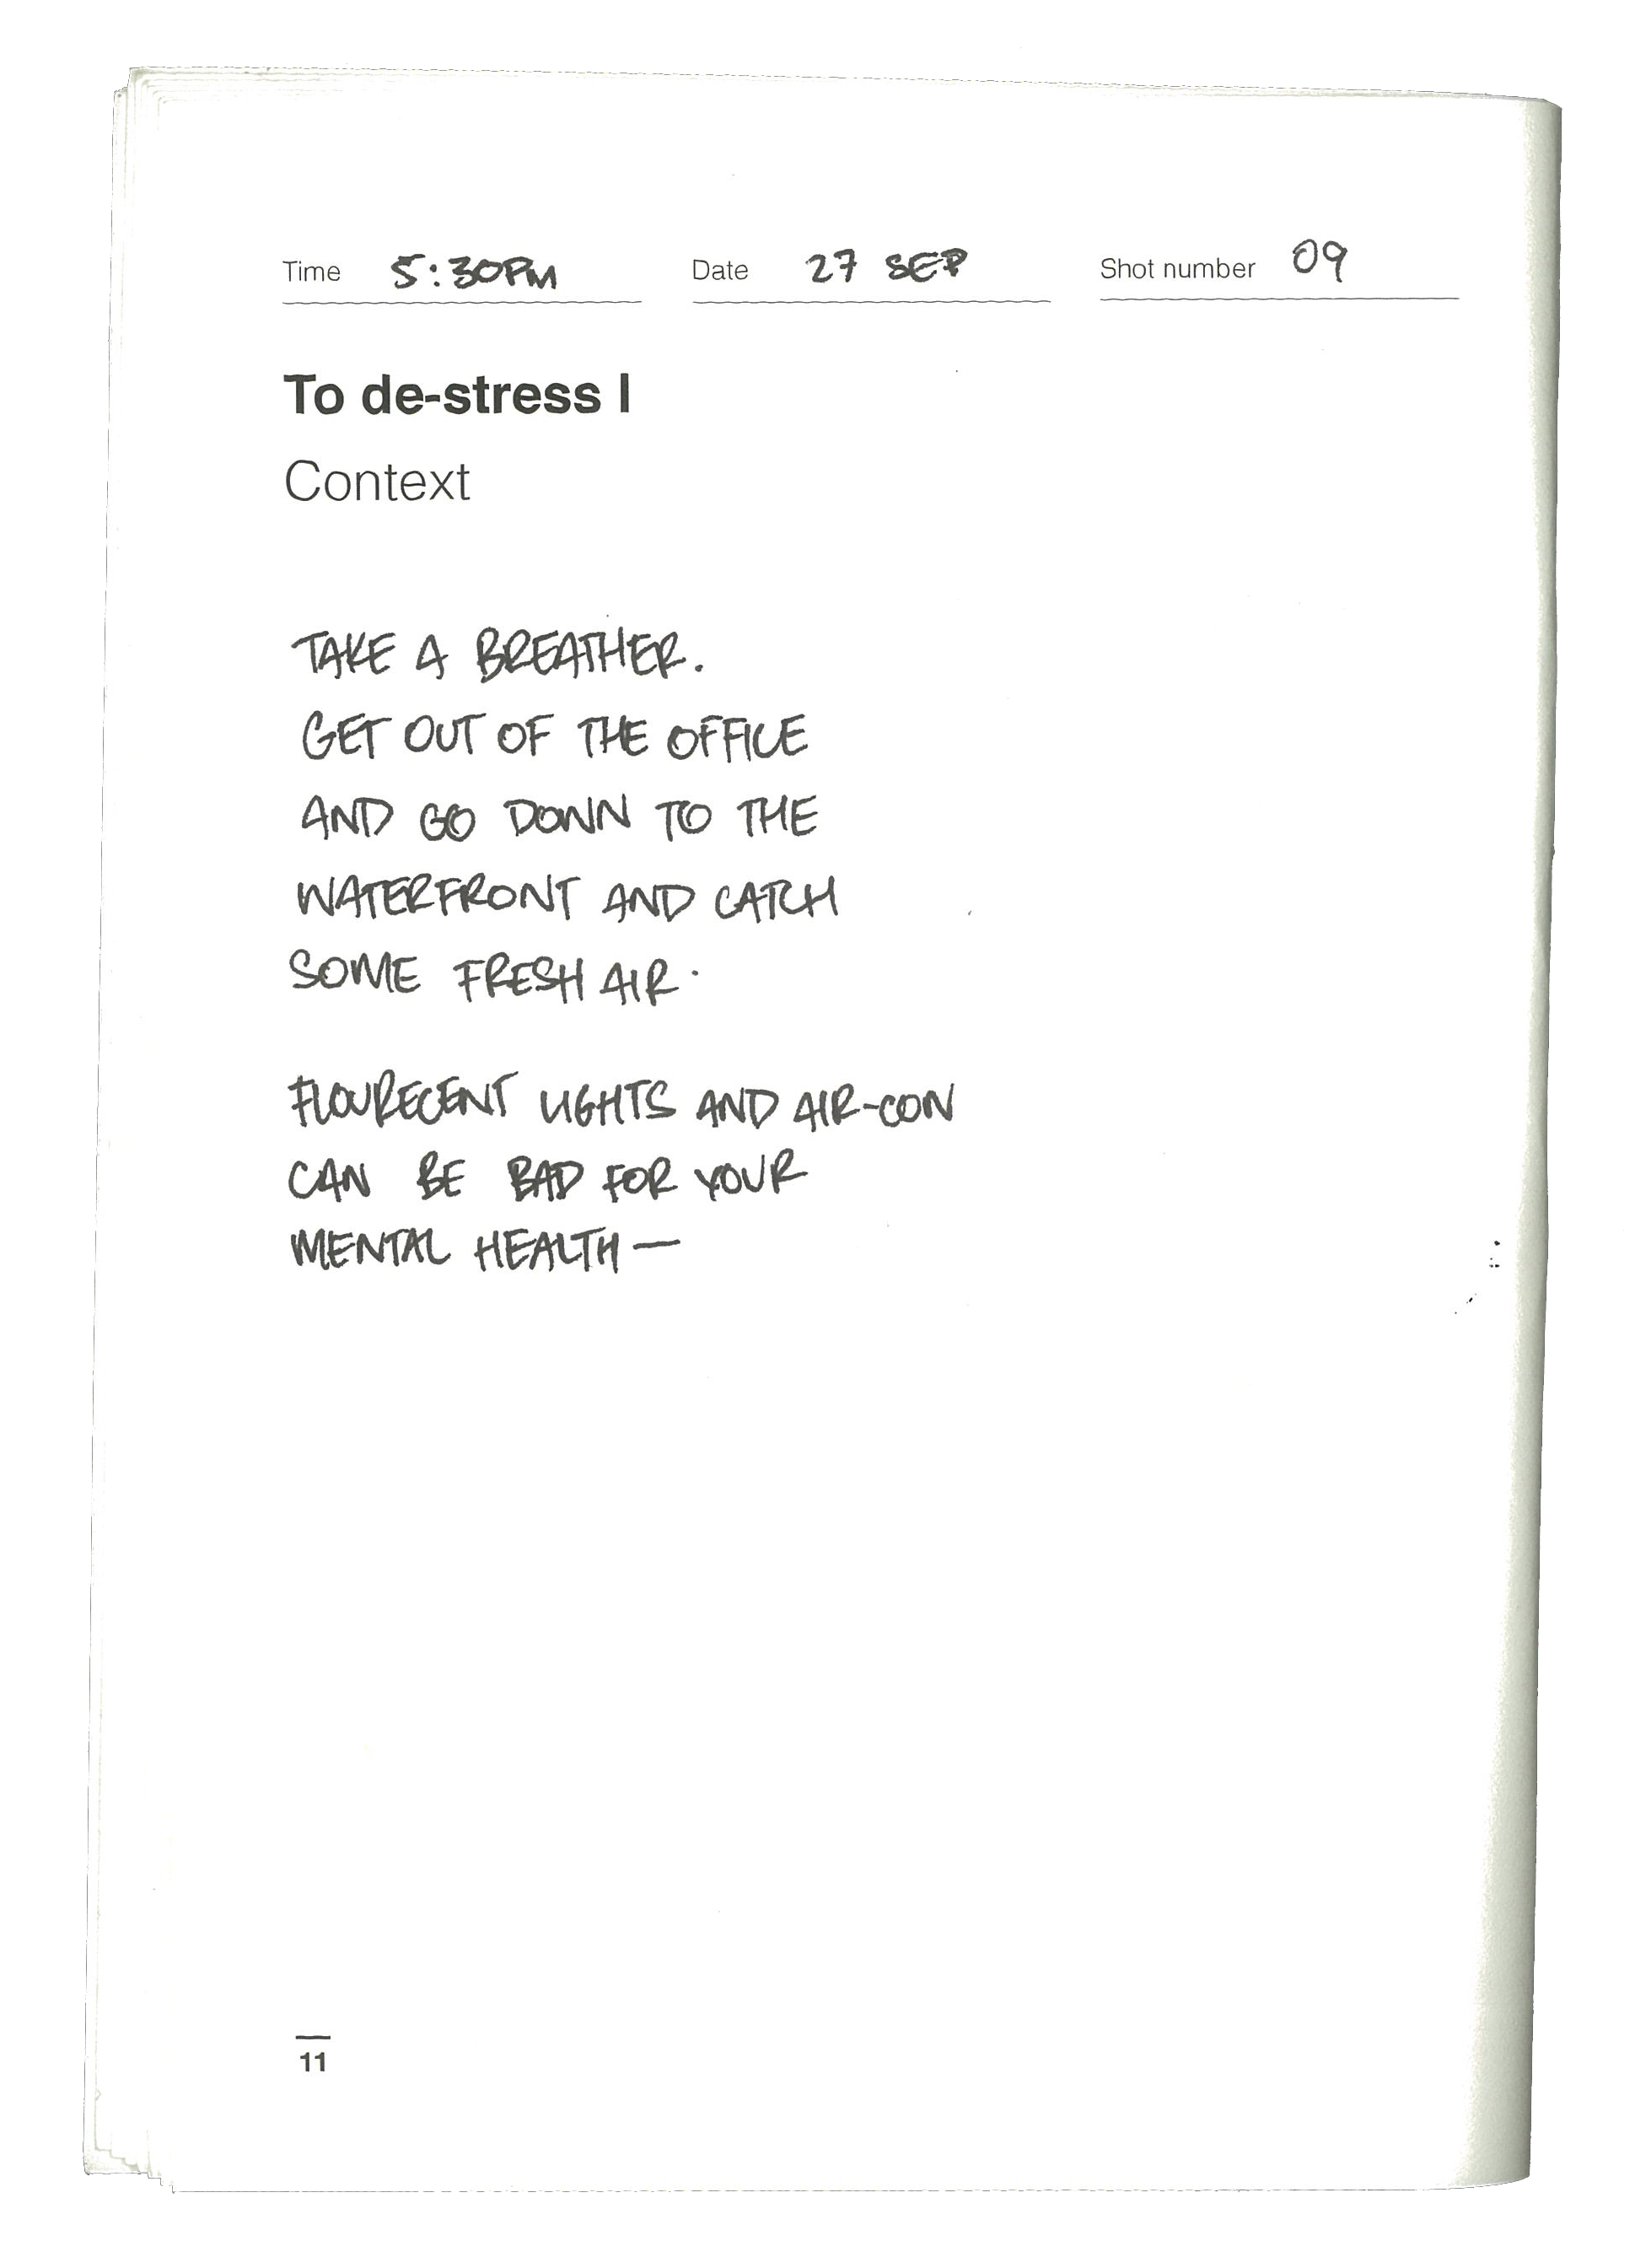 Time 5:30PM Date 27 SEP Shot number 09
To de-stress I
Context
TAKE A BREATHER.
GET OUT OF THE OFFICE
AND GO DOWN TO THE
WATERFRONT AND CATCH
SOME FRESH AIR.
FLOURECENT LIGHTS AND AIR-CON
CAN BE BAD FOR YOUR
MENTAL HEALTH—
11